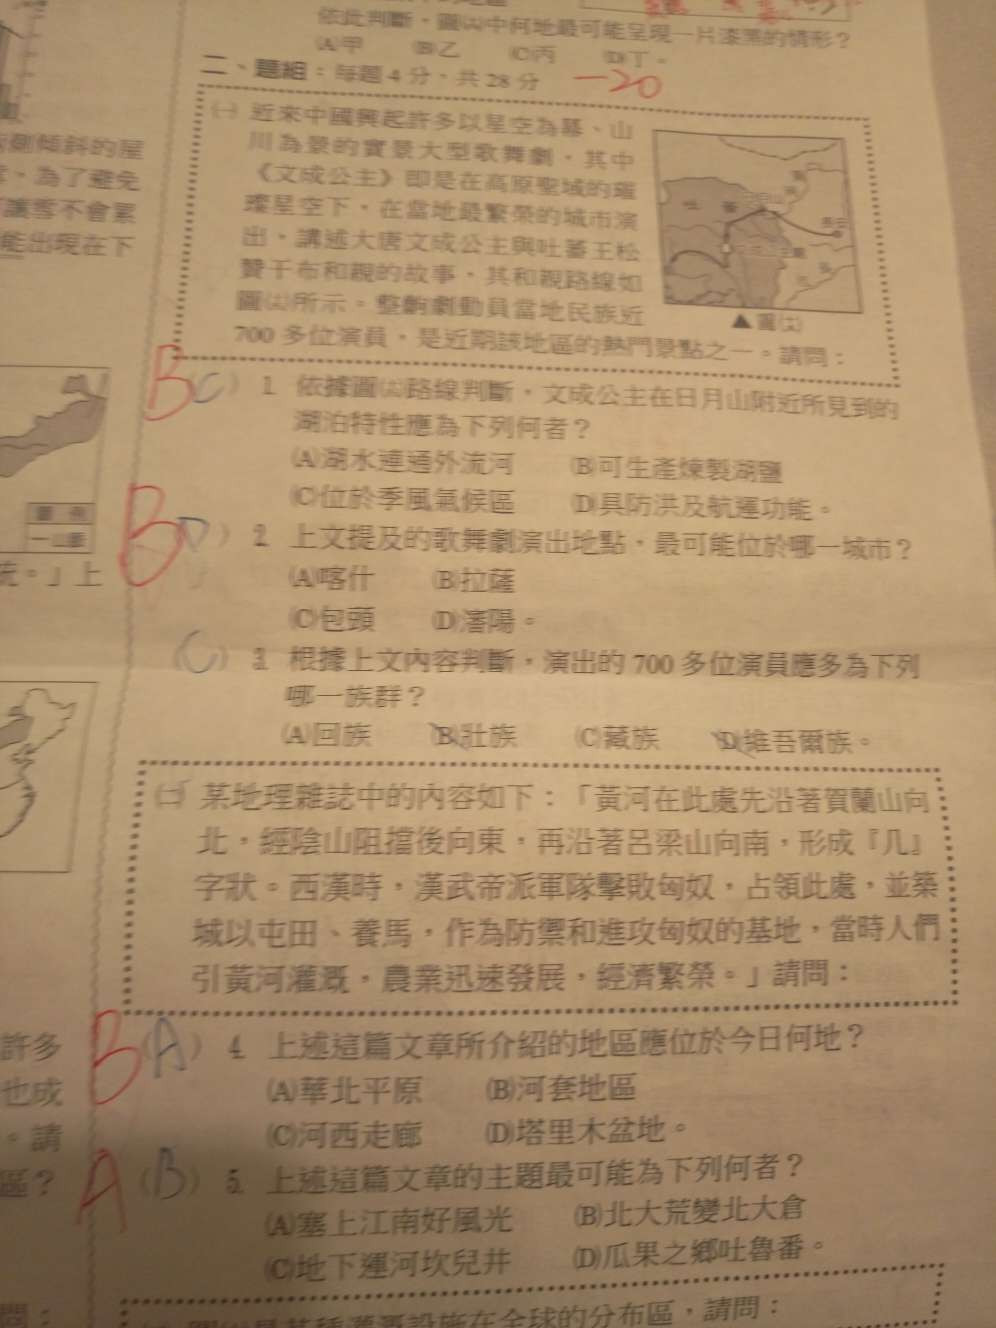 依此判斷，圖中何地最可能呈現一片漆黑的情形？
(A)甲 (B)乙 (C)丙 (D)丁。
二、題組：每題 4 分，共 28 分 -20
㈠ 近來中國興起許多以星空為幕、山
川為景的實景大型歌舞劇，其中
《文成公主》即是在高原聖城的璀
璨星空下，在當地最繁榮的城市演
出，講述大唐文成公主與吐蕃王松
贊干布和親的故事，其和親路線如
圖㈡所示。整齣劇動員當地民族近
700 多位演員，是近期該地區的熱門景點之一。請問：
▲圖
B (C) 1. 依據圖路線判斷，文成公主在日月山附近所見到的
湖泊特性應為下列何者？
(A)湖水連通外流河 (B)可生產煉製湖鹽
(C)位於季風氣候區 (D)具防洪及航運功能。
B (D) 2. 上文提及的歌舞劇演出地點，最可能位於哪一城市？
(A)喀什 (B)拉薩
(C)包頭 (D)瀋陽。
(C) 3. 根據上文內容判斷，演出的 700 多位演員應多為下列
哪一族群？
(A)回族 (B)壯族 (C)藏族 (D)維吾爾族。
㈡ 某地理雜誌中的內容如下：「黃河在此處先沿著賀蘭山向
北，經陰山阻擋後向東，再沿著呂梁山向南，形成『几』
字狀。西漢時，漢武帝派軍隊擊敗匈奴，占領此處，並築
城以屯田、養馬，作為防禦和進攻匈奴的基地，當時人們
引黃河灌溉，農業迅速發展，經濟繁榮。」請問：
B (A) 4. 上述這篇文章所介紹的地區應位於今日何地？
(A)華北平原 (B)河套地區
(C)河西走廊 (D)塔里木盆地。
A (B) 5. 上述這篇文章的主題最可能為下列何者？
(A)塞上江南好風光 (B)北大荒變北大倉
(C)地下運河坎兒井 (D)瓜果之鄉吐魯番。
灌溉設施在全球的分布區，請問：
側傾斜的屋
，為了避免
讓雪不會累
能出現在下
圖例
」上
許多
也成
。請
區？
問：